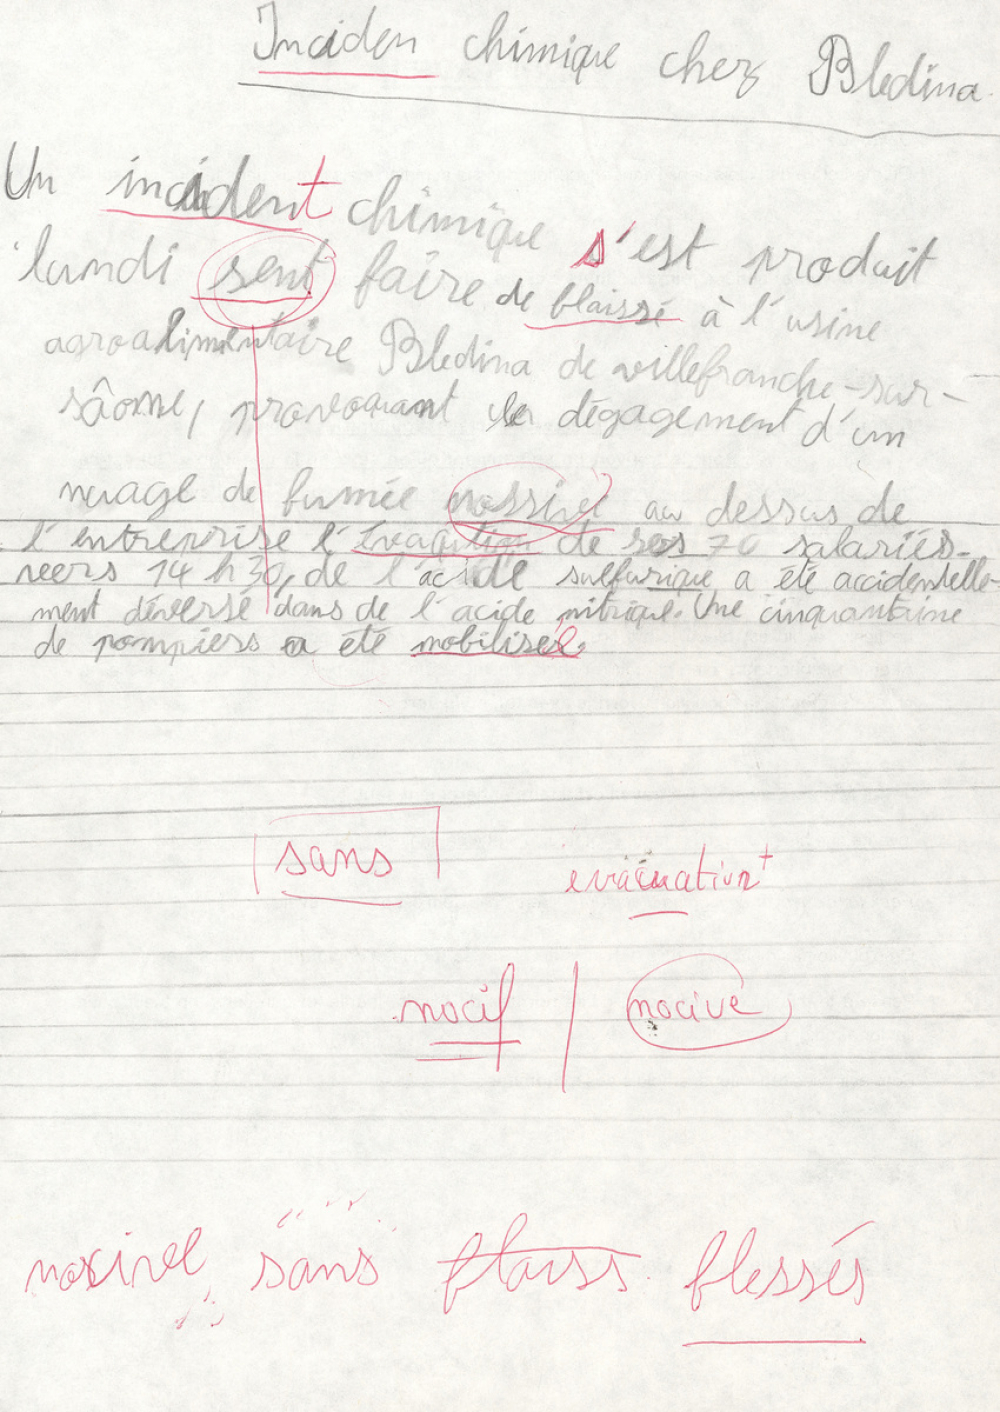 Inciden chimique chez Bledina
Un incident chimique s'est produit
lundi sent faire de blaissé à l'usine
agroalimentaire Bledina de villefranche-sur-
sâone, provoquant le dégagement d'un
nuage de fumée au dessus de
l'entreprise l' de ses 70 salariés.
vers 14 h 30, de l'acide sulfurique a été accidentelle-
ment déversé dans de l'acide nitrique. Une cinquantaine
de pompiers a été mobilisé.
sans évacuation
nocif nocive
sans blaiss blessés